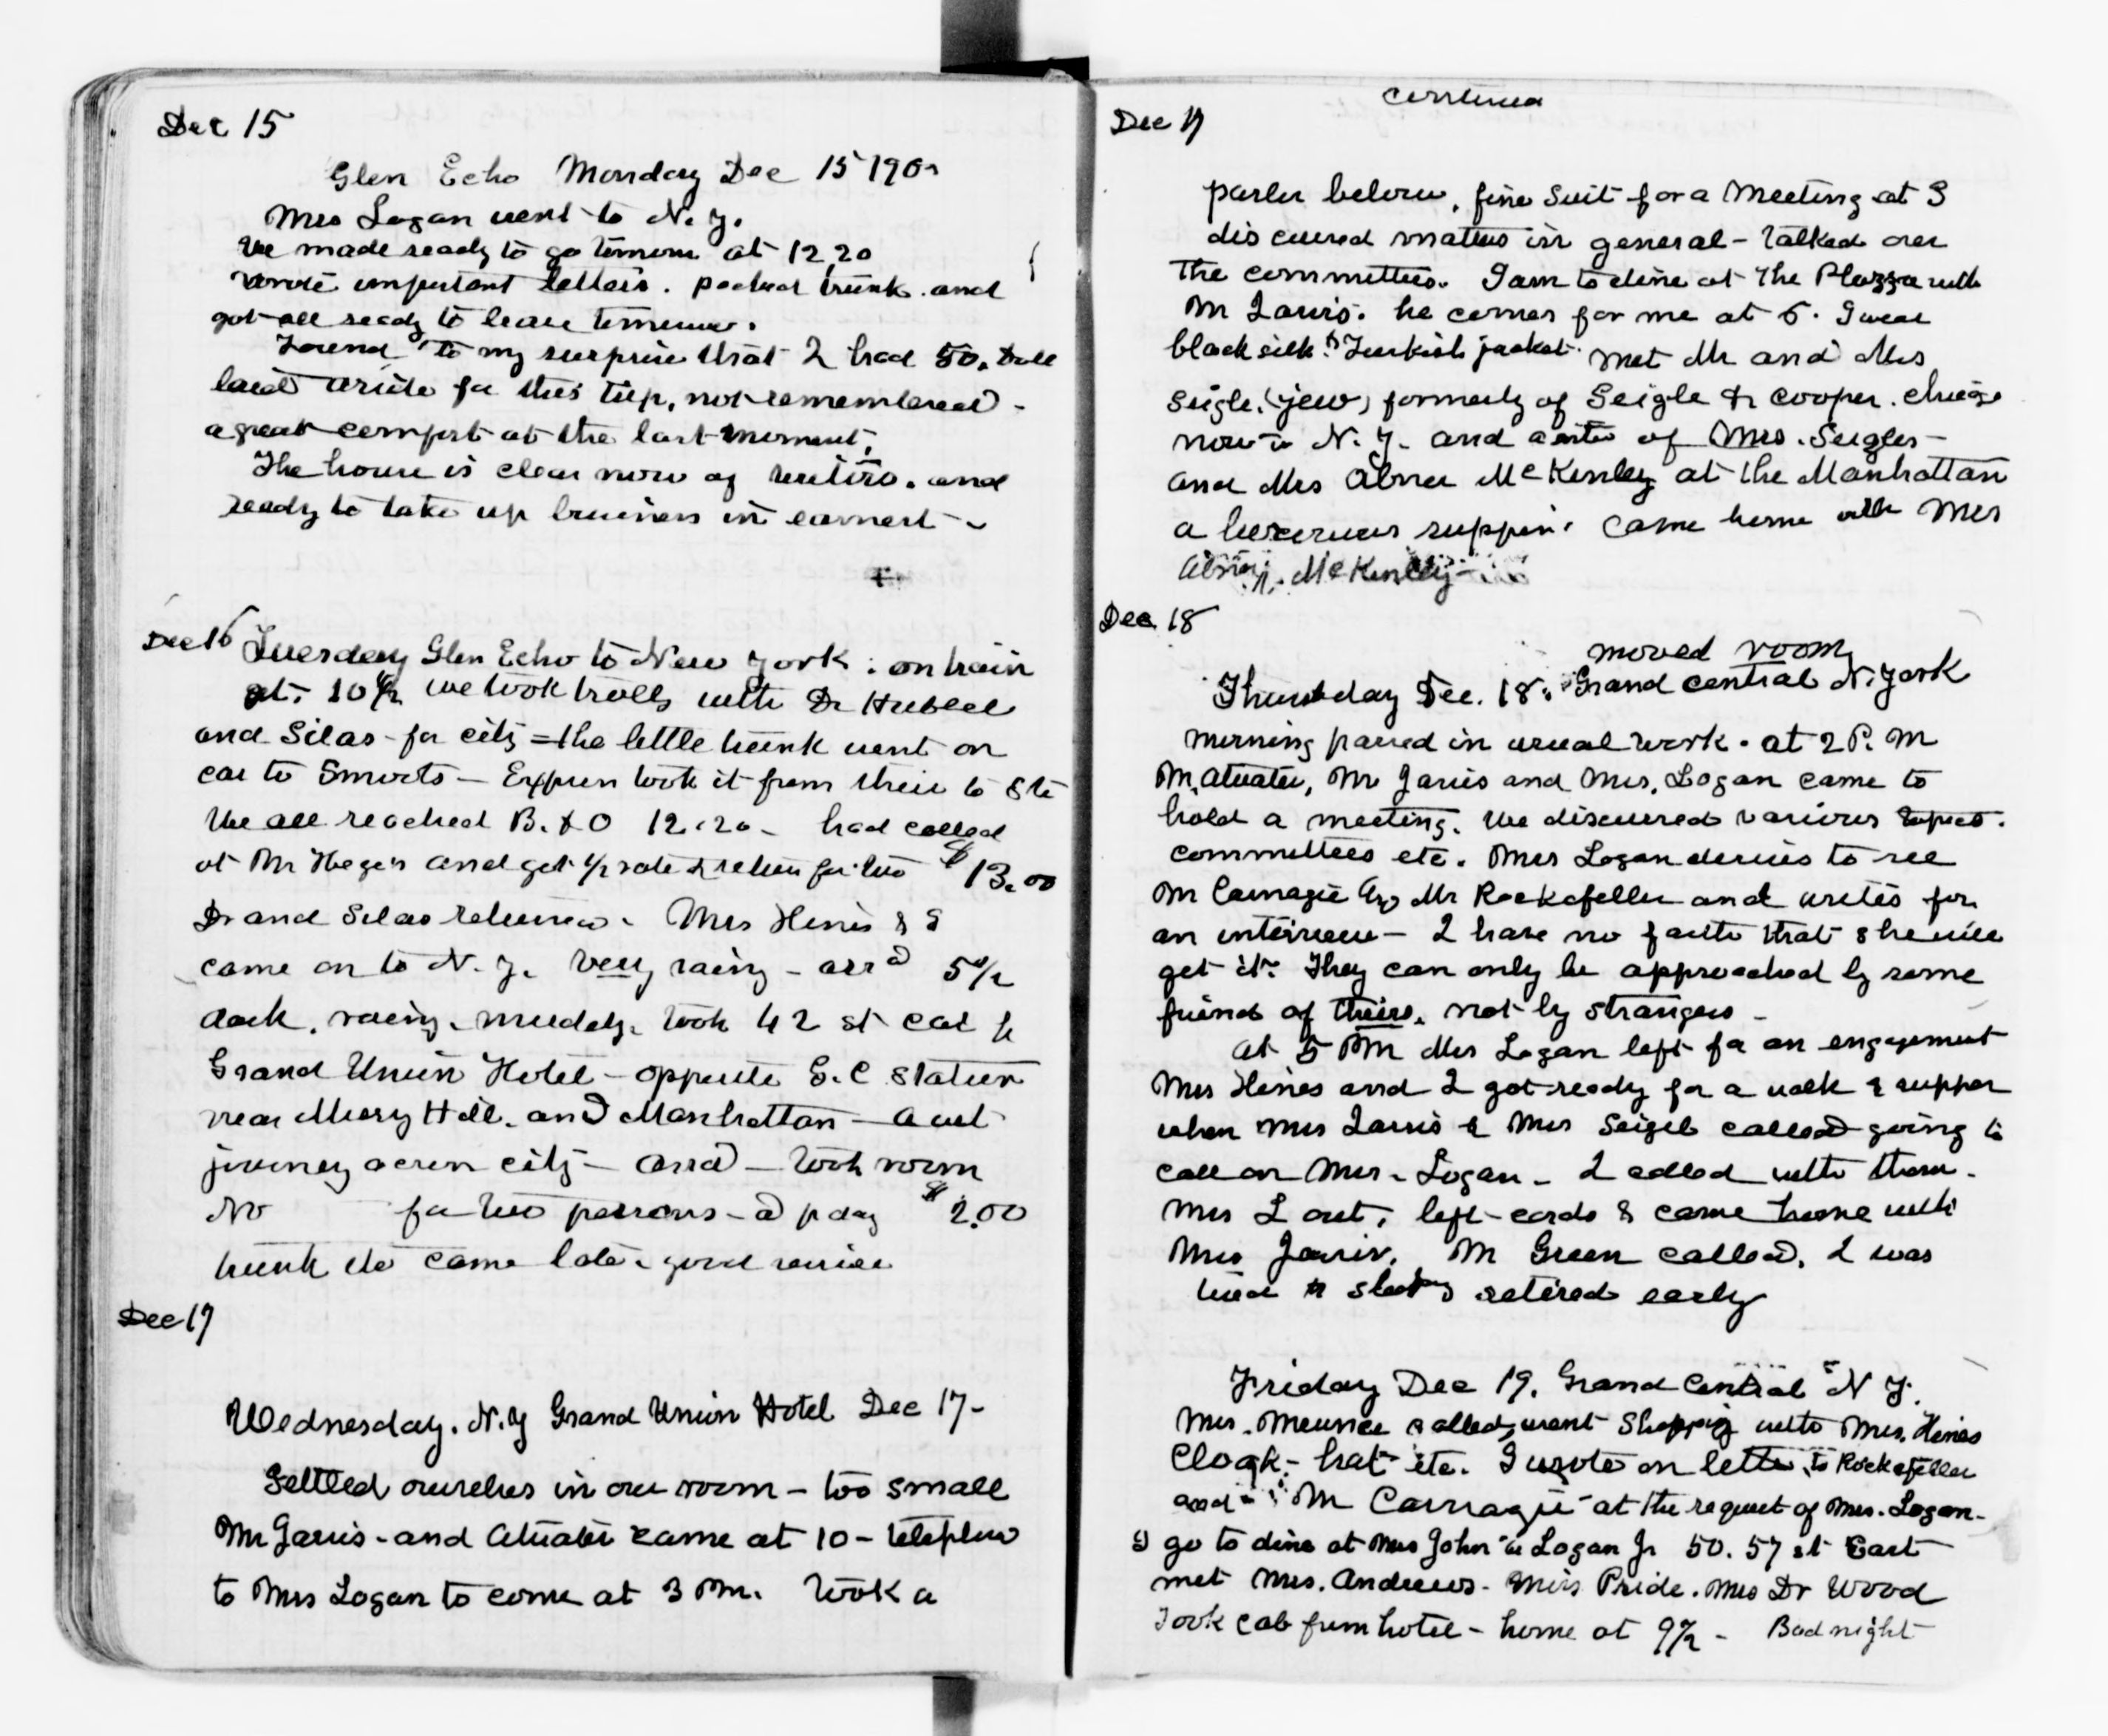 Dec 15
Glen Echo Monday Dec 15 190
Mrs Logan went to N. Y.
We made ready to go tomorrow at 12,20
wrote important letters. packed trunk and
got all ready to leave tomorrow.
Found to my surprise that I had 50. Doll
laid aside for this trip, not remembered -
a great comfort at the last moment,
The house is clear now of and
ready to take up business in earnest -
Dec 16 Tuesday Glen Echo to New York. on train
at. 10½ we took trolly with Dr Hubbell
and Silas - for city = the little trunk went on
car to - Express took it from there to Sta
We all reached B. & O 12.20 - had called
at Mr Hege's and got ½ rate & return for two $13.00
Dr and Silas returned. Mrs Hines & I
came on to N. Y. very rainy - arrd 5½
dark, rainy, muddy. took 42 st car to
Grand Union Hotel - opposite G. C station
near Murry Hill. and Manhattan - a wet
journey across city - arrd - took room
No for two persons - a p day $2.00
trunk etc came late. good service
Dec 17
Wednesday. N.Y Grand Union Hotel Dec 17-
Settled ourselves in our room - too small
Mr Jarvis - and Atwater came at 10 - telephone
to Mrs Logan to come at 3 PM. Took a
continued
Dec 17
parlor below, fine suit for a meeting at 3
discussed matters in general - talked over
the committees. I am to dine at the Plazza with
Mr Jarvis. he comes for me at 6. I wear
black silk & Turkish jacket. met Mr and Mrs
Seigle, (jew) formerly of Seigle & Cooper. Chicago
now in N. Y. and a sister of Mrs. Seigles -
and Mrs Abner McKenley at the Manhattan
a luxurious supper. Came home with Mrs
Abner. McKenley -
Dec. 18
moved room
Thursday Dec. 18. Grand Central N. York
morning passed in usual work. at 2 P. M
Mr. Atwater, Mr Jarvis and Mrs. Logan came to
hold a meeting. We discussed various topics.
committees etc. Mrs Logan desires to see
Mr Carnagie & Mr Rockafeller and writes for
an interview - I have no faith that she will
get it. They can only be approached by some
friend of theirs, not by strangers -
At 5 PM Mrs Logan left for an engagement
Mrs Hines and I got ready for a walk & supper
when Mrs Jarvis & Mrs Seigel called going to
call on Mrs. Logan - I called with them.
Mrs L out, left cards & came home with
Mrs Jarvis. Mr Green called, I was
tired & sleepy retired early
Friday Dec 19. Grand Central N Y.
Mrs. called, went shopping with Mrs. Hines
Cloak - hat etc. I wrote on letter to Rockefeller
and Mr Carnagie at the request of Mrs. Logan -
go to dine at Mrs John A Logan Jr 50. 57 st East
met Mrs. Andrews - Miss Pride. Mrs Dr Wood
Took cab from hotel - home at 9½ - Bad night